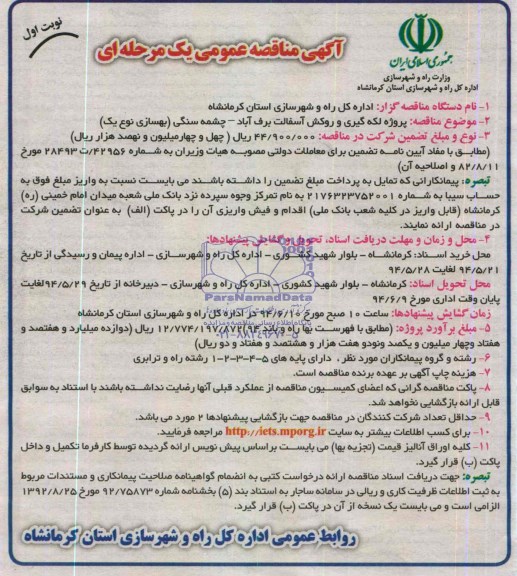 نوبت اول
آگهی مناقصه عمومی یک مرحله ای
جمهوری اسلامی ایران
وزارت راه و شهرسازی
اداره کل راه و شهرسازی استان کرمانشاه
۱- نام دستگاه مناقصه گزار: اداره کل راه و شهرسازی استان کرمانشاه
۲- موضوع مناقصه: پروژه لکه گیری و روکش آسفالت برف آباد – چشمه سنگی (بهسازی نوع یک)
۳- نوع و مبلغ تضمین شرکت در مناقصه: ۴۴/۹۰۰/۰۰۰ ریال ( چهل و چهارمیلیون و نهصد هزار ریال)
(مطابق با مفاد آیین نامه تضمین برای معاملات دولتی مصوبه هیات وزیران به شماره ۴۲۹۵۶/ت ۲۸۴۹۳ مورخ
۸۲/۸/۱۱ و اصلاحیه آن)
تبصره: پیمانکارانی که تمایل به پرداخت مبلغ تضمین را داشته باشند می بایست نسبت به واریز مبلغ فوق به
حساب سیبا به شماره ۲۱۷۶۳۲۳۷۵۲۰۰۱ به نام تمرکز وجوه سپرده نزد بانک ملی شعبه میدان امام خمینی (ره)
کرمانشاه (قابل واریز در کلیه شعب بانک ملی) اقدام و فیش واریزی آن را در پاکت (الف) به عنوان تضمین شرکت
در مناقصه ارائه نمایند.
۴- محل و زمان و مهلت دریافت اسناد، تحویل و گشایش پیشنهادها:
محل خرید اسناد: کرمانشاه – بلوار شهید کشوری – اداره کل راه و شهرسازی – اداره پیمان و رسیدگی از تاریخ
۹۴/۵/۲۱ لغایت ۹۴/۵/۲۸
محل تحویل اسناد: کرمانشاه – بلوار شهید کشوری – اداره کل راه و شهرسازی – دبیرخانه از تاریخ ۹۴/۵/۲۹ لغایت
پایان وقت اداری مورخ ۹۴/۶/۹
زمان گشایش پیشنهادها: ساعت ۱۰ صبح مورخ ۹۴/۶/۱۰ در اداره کل راه و شهرسازی استان کرمانشاه
۵- مبلغ برآورد پروژه: (مطابق با فهرست بها راه و باند ۹۴) ۱۲/۷۷۴/۱۹۷/۸۷۲ ریال (دوازده میلیارد و هفتصد و
هفتاد وچهار میلیون و یکصد ونودو هفت هزار و هشتصد و هفتاد و دو ریال)
۶- رشته و گروه پیمانکاران مورد نظر : دارای پایه های ۵-۴-۳-۲-۱ رشته راه و ترابری
۷- هزینه چاپ آگهی بر عهده برنده مناقصه است.
۸- پاکت مناقصه گرانی که اعضای کمیسیون مناقصه از عملکرد قبلی آنها رضایت نداشته باشند با استناد به سوابق
قابل ارائه بازگشایی نخواهد شد.
۹- حداقل تعداد شرکت کنندگان در مناقصه جهت بازگشایی پیشنهادها ۲ مورد می باشد.
۱۰- برای کسب اطلاعات بیشتر به سایت http://iets.mporg.ir مراجعه فرمایید.
۱۱- کلیه اوراق آنالیز قیمت (تجزیه بها) می بایست بر اساس پیش نویس ارائه گردیده توسط کارفرما تکمیل و داخل
پاکت (ب) قرار گیرد.
تبصره: جهت دریافت اسناد مناقصه ارائه درخواست کتبی به انضمام گواهینامه صلاحیت پیمانکاری و مستندات مربوط
به ثبت اطلاعات ظرفیت کاری و ریالی در سامانه ساجار به استناد بند (۵) بخشنامه شماره ۹۲/۷۵۸۷۳ مورخ ۱۳۹۲/۸/۲۵
الزامی است و می بایست یک نسخه از آن در پاکت (ب) قرار گیرد.
روابط عمومی اداره کل راه و شهرسازی استان کرمانشاه
ParsNamadData